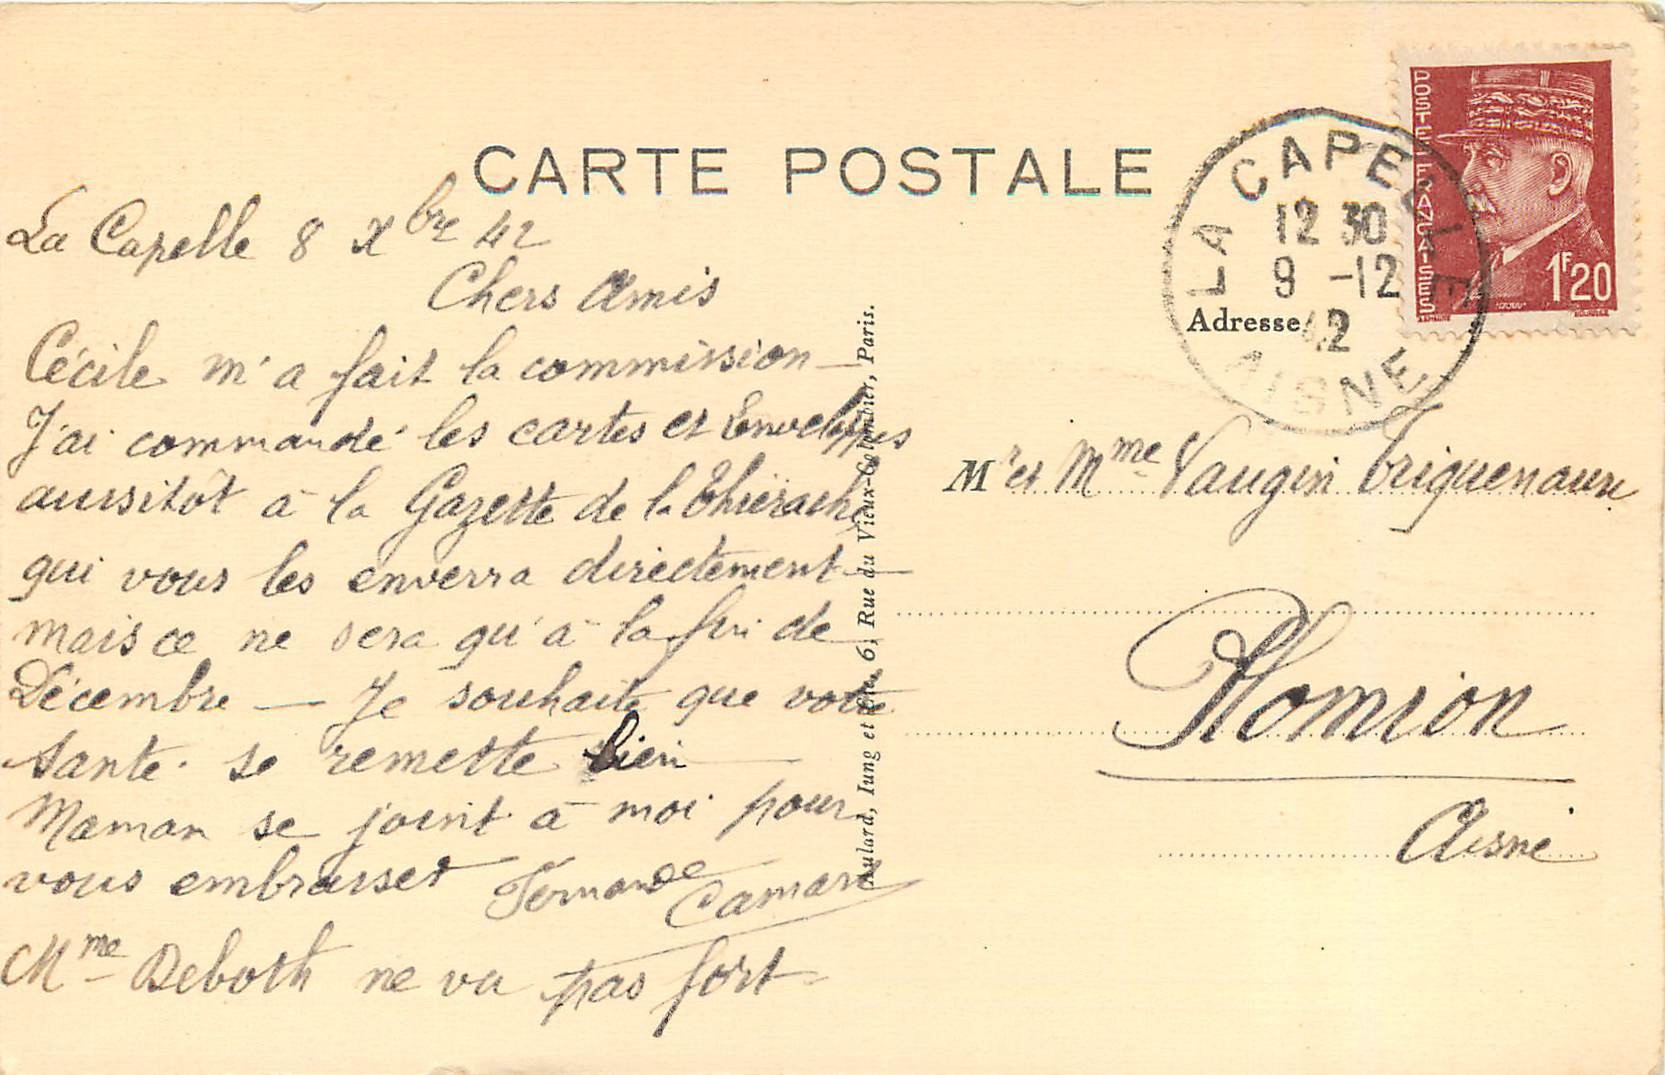 CARTE POSTALE
La Capelle 8 Xbre 42
Chers Amis
Cécile m'a fait la commission –
J'ai commandé les cartes et Enveloppes
aussitôt à la Gazette de la Thiérache
qui vous les enverra directement –
mais ce ne sera qu'à la fin de
Décembre – Je souhaite que votre
Santé se remette bien
Maman se joint à moi pour
vous embrasser Fernande
Camare
Mme Deboth ne va pas fort –
Aulard, Iung et Cie, 6, Rue du Vieux-Colombier, Paris.
POSTES FRANÇAISES
1F20
LA CAPELLE
12 30
9 -12
42
AISNE
Adresse
Mr et Mme Vaugin Briquenaure
Plomion
Aisne